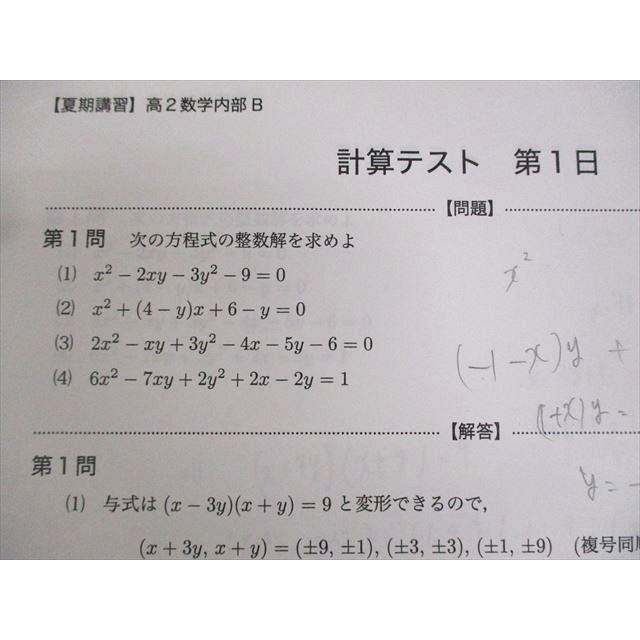 【夏期講習】高2数学内部B
計算テスト 第1日
【問題】
第1問 次の方程式の整数解を求めよ
(1) x² − 2xy − 3y² − 9 = 0
(2) x² + (4 − y)x + 6 − y = 0
(3) 2x² − xy + 3y² − 4x − 5y − 6 = 0
(4) 6x² − 7xy + 2y² + 2x − 2y = 1
x²
(−1−x)y +
(1+x)y =
【解答】
第1問
y = −
(1) 与式は (x − 3y)(x + y) = 9 と変形できるので,
(x + 3y, x + y) = (±9, ±1), (±3, ±3), (±1, ±9) (複号同順